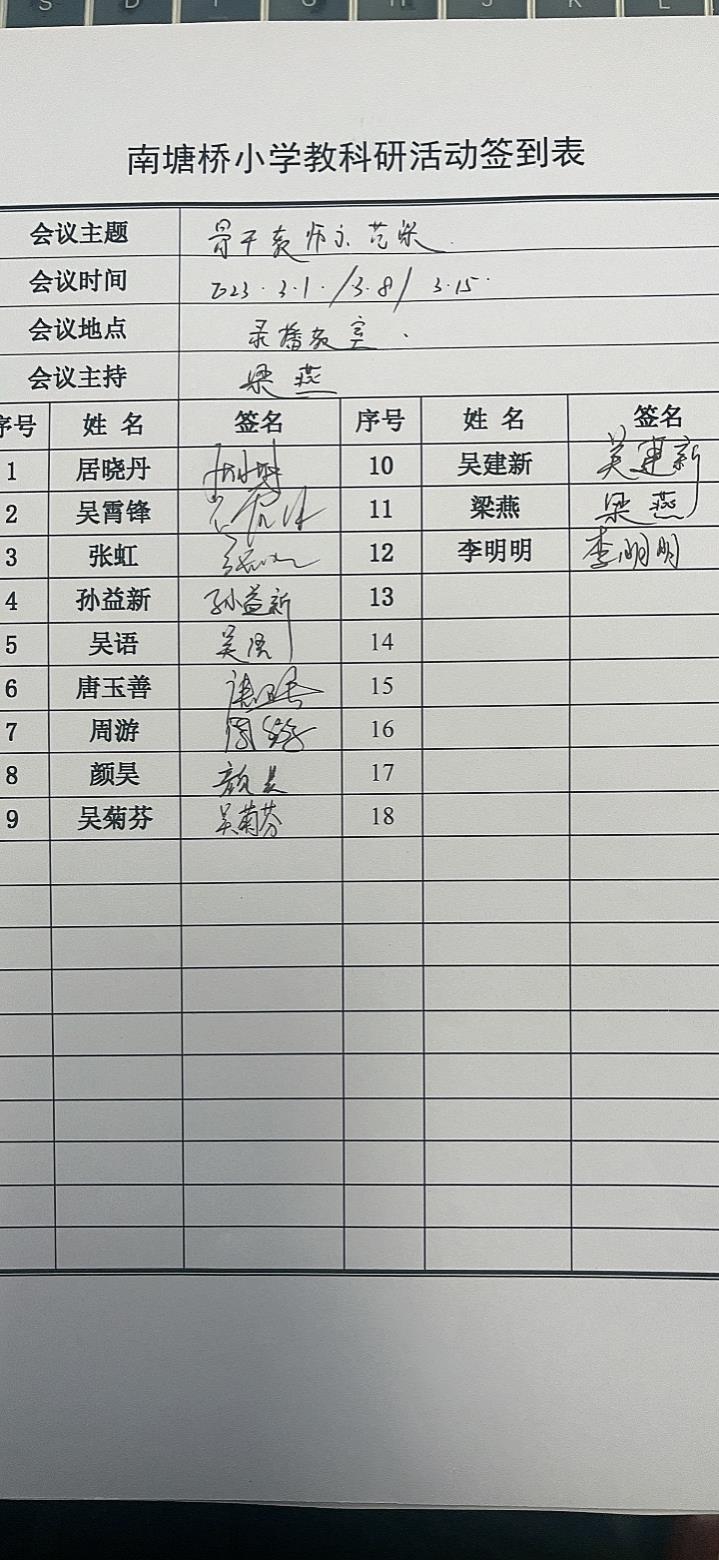 南塘桥小学教科研活动签到表
会议主题 骨干教师示范课
会议时间 2023.3.1./3.8/ 3.15.
会议地点 录播教室.
会议主持 梁燕
序号 姓名 签名 序号 姓名 签名
1 居晓丹 10 吴建新 吴建新
2 吴霄锋 11 梁燕 梁燕
3 张虹 12 李明明 李明明
4 孙益新 孙益新 13
5 吴语 吴语 14
6 唐玉善 15
7 周游 周游 16
8 颜昊 颜昊 17
9 吴菊芬 吴菊芬 18